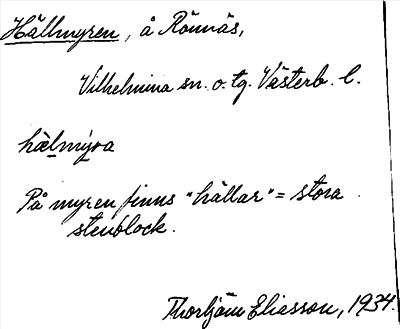 Hällmyren, å Rönnäs,
Vilhelmina sn. o. tg. Västerb. l.
hälmýra
På myren finns "hällar" = stora
stenblock.
Thorbjörn Eliasson, 1934.